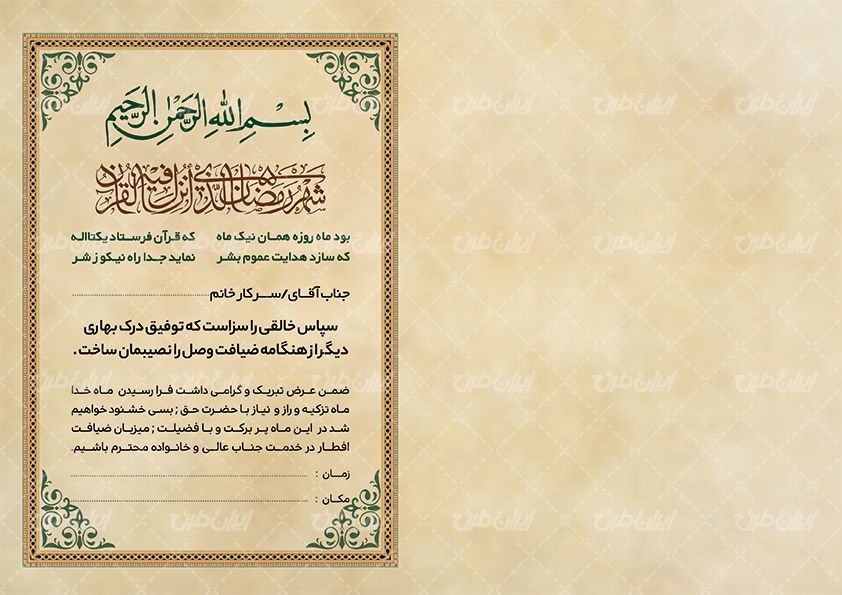 بِسْمِ اللهِ الرَّحْمٰنِ الرَّحیمِ
شَهْرُ رَمَضانَ الَّذی أُنْزِلَ فیهِ الْقُرْآن
بود ماه روزه همان نیک ماه که قرآن فرستاد یکتااله
که سازد هدایت عموم بشر نماید جدا راه نیکو ز شر
جناب آقای/سرکار خانم
سپاس خالقی را سزاست که توفیق درک بهاری
دیگر از هنگامه ضیافت وصل را نصیبمان ساخت.
ضمن عرض تبریک و گرامی داشت فرا رسیدن ماه خدا
ماه تزکیه و راز و نیاز با حضرت حق ; بسی خشنود خواهیم
شد در این ماه پر برکت و با فضیلت ; میزبان ضیافت
افطار در خدمت جناب عالی و خانواده محترم باشیم.
زمان :
مکان :
ایران طرح